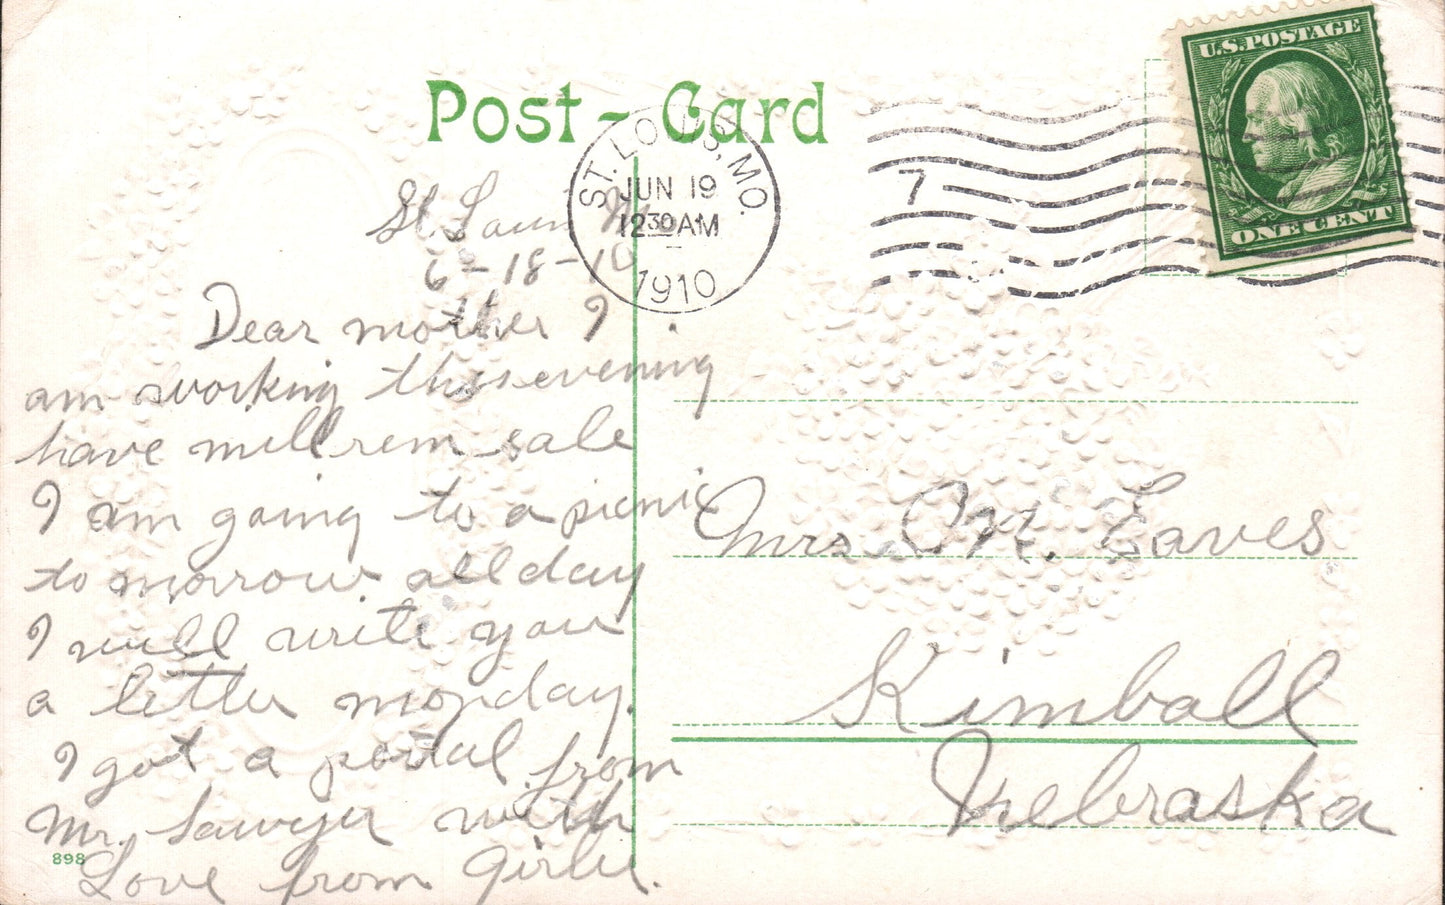 Post-Card
U.S. POSTAGE
ONE CENT
ST. LOUIS, MO.
JUN 19
12 30 AM
1910
7
St. Louis Mo
6-18-10
Dear mother I
am working this evening
have mill rem sale
I am going to a picnic
to morrow all day
I will write you
a letter monday.
I got a postal from
Mr. Sawyer with
Love from Girlie.
898
Mrs. M. Eaves
Kimball
Nebraska